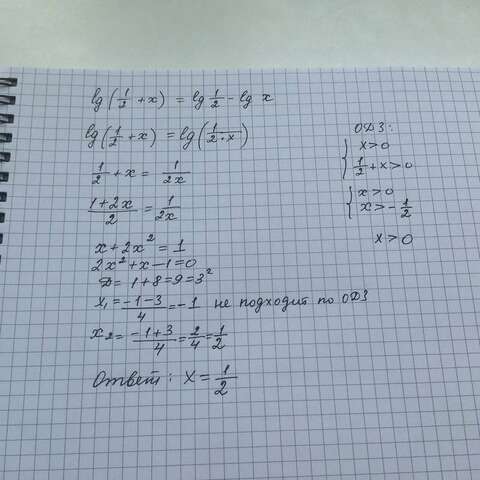 lg(1/2 + x) = lg 1/2 - lg x
lg(1/2 + x) = lg(1/(2·x))
1/2 + x = 1/(2x)
(1+2x)/2 = 1/(2x)
x + 2x² = 1
2x² + x - 1 = 0
D = 1 + 8 = 9 = 3²
x₁ = (-1-3)/4 = -1 не подходит по ОДЗ
x₂ = (-1+3)/4 = 2/4 = 1/2
Ответ: x = 1/2
ОДЗ:
{ x > 0
1/2 + x > 0
{ x > 0
x > - 1/2
x > 0